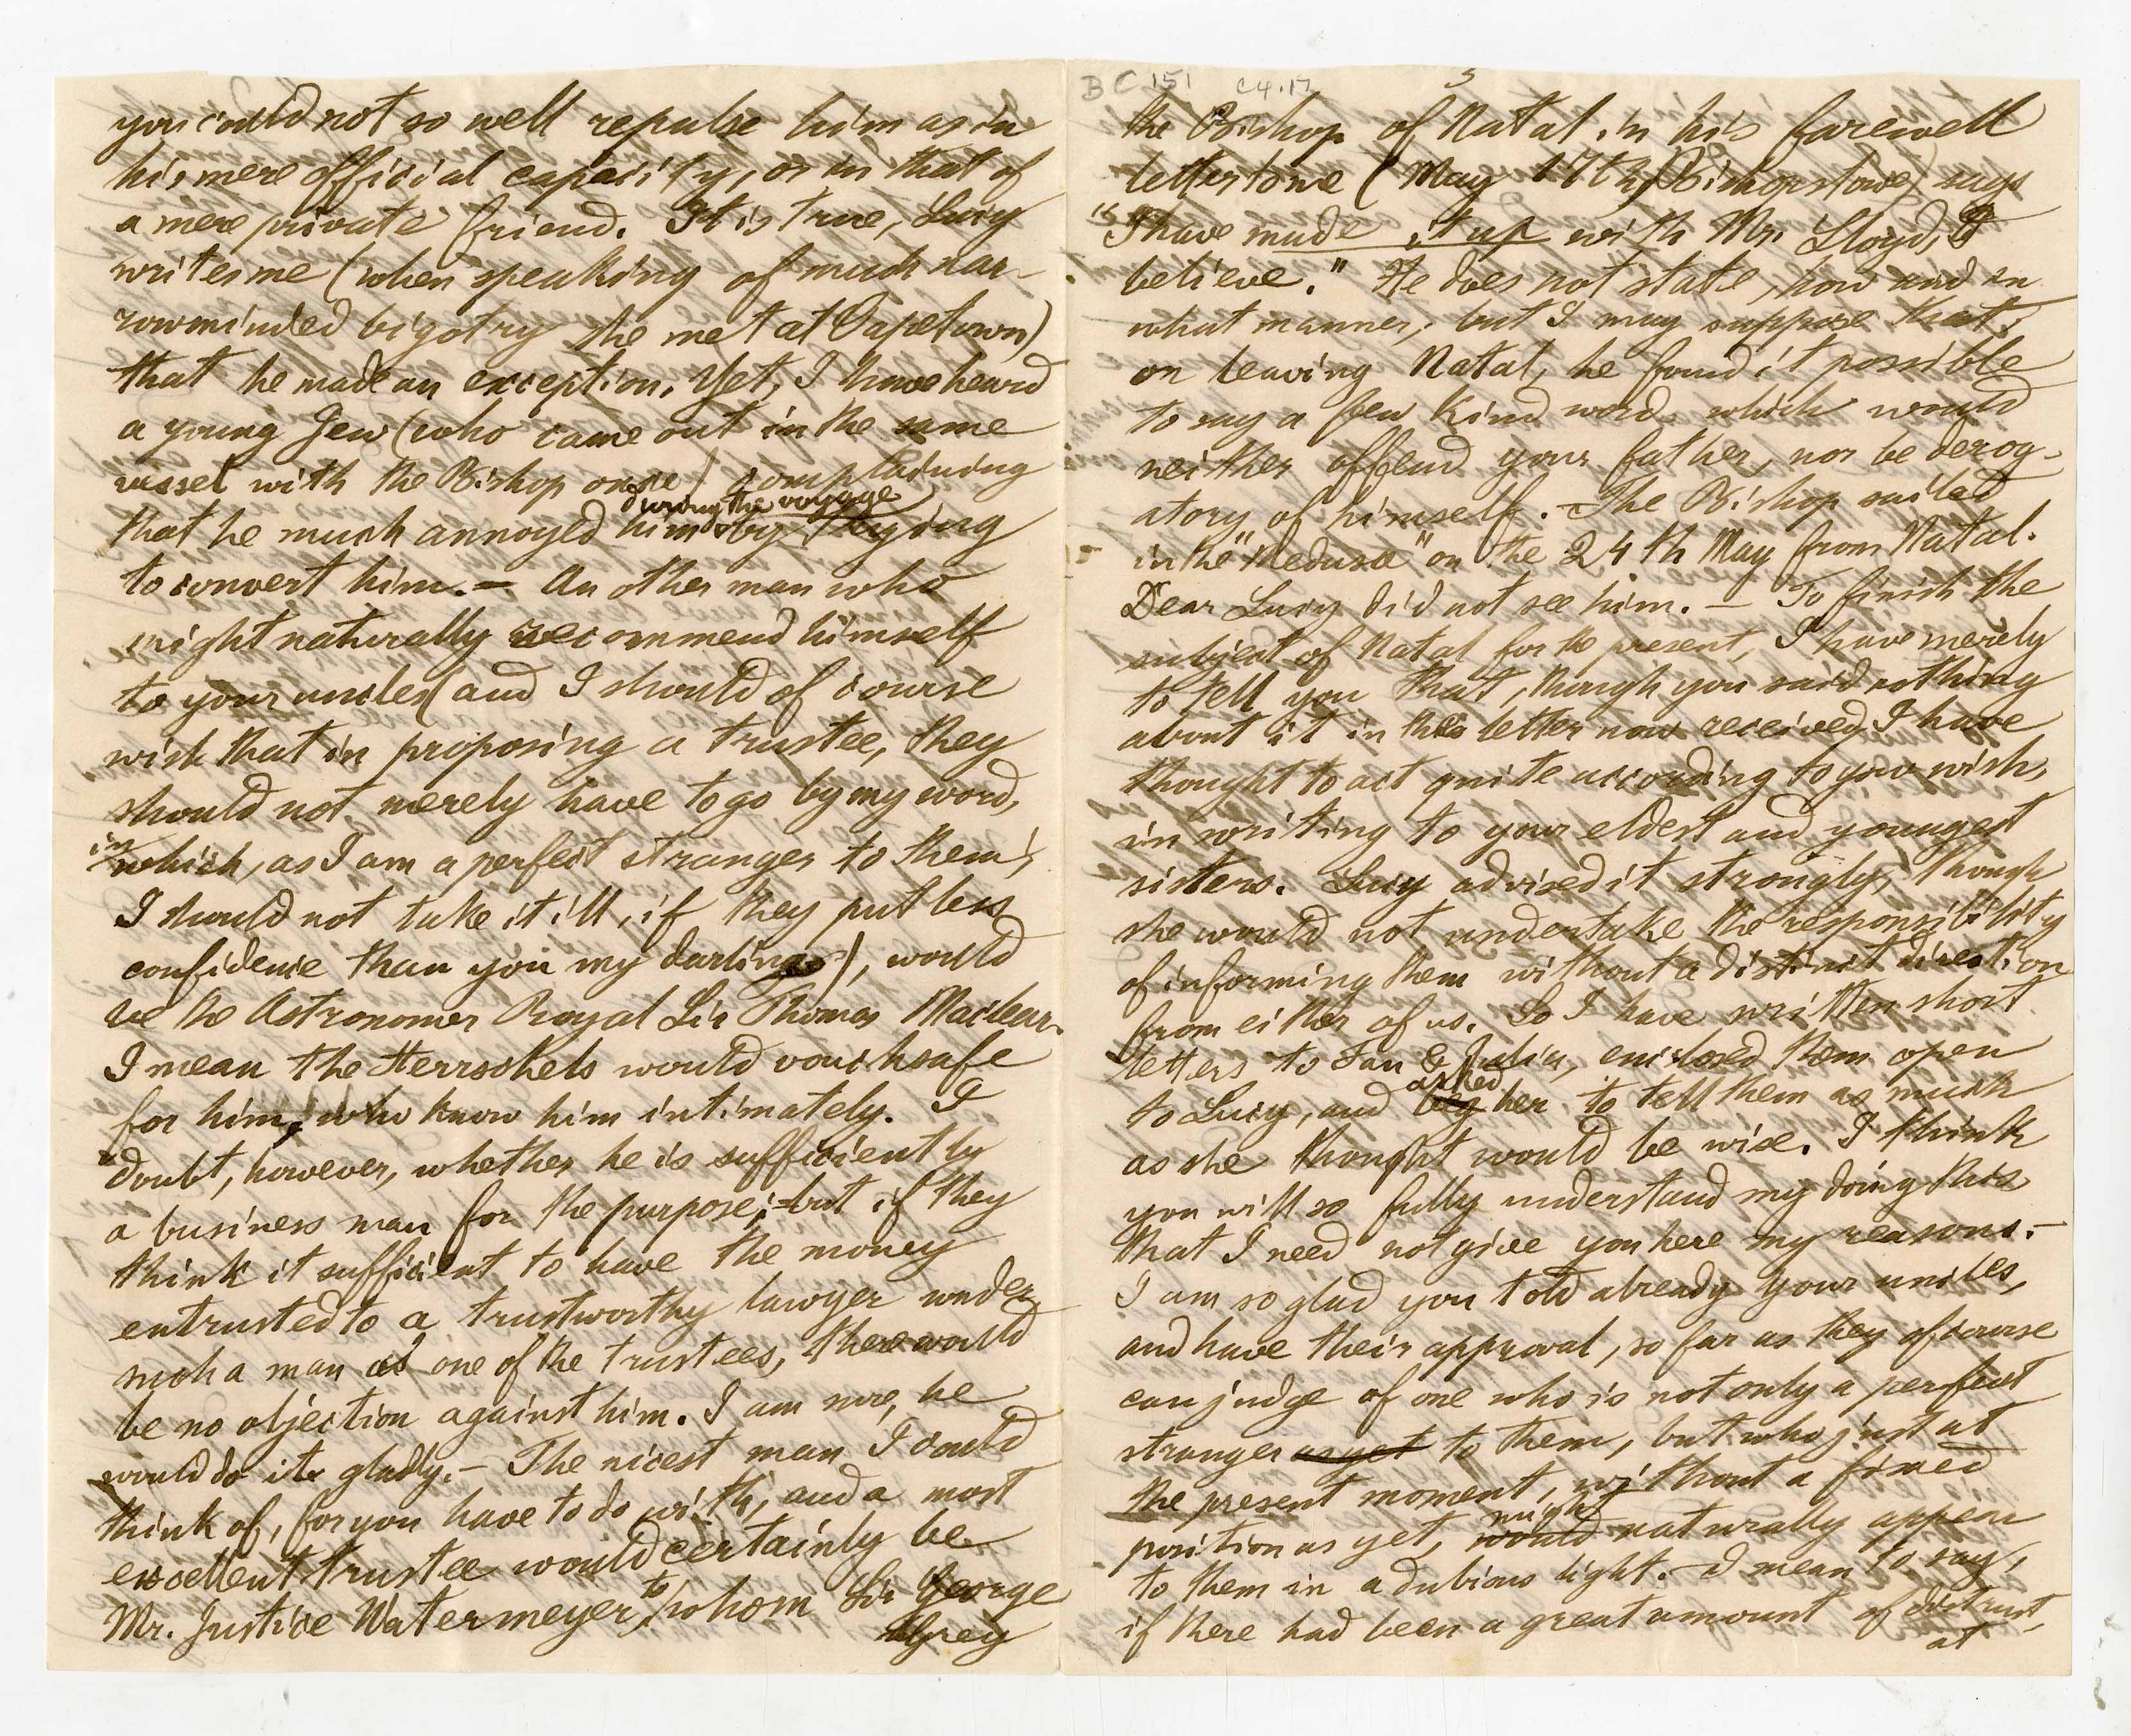 you could not so well repulse him as in
his mere official capacity, or in that of
a mere private friend. It is true, Lucy
writes me (when speaking of much nar-
rowminded bigotry she met at Capetown)
that he made an exception. Yet, I have heard
a young Jew (who came out in the same
vessel with the Bishop once) complaining
during the voyage
that he much annoyed him by trying
to convert him. – Another man who
might naturally recommend himself
to your uncles (and I should of course
wish that in proposing a trustee, they
should not merely have to go by my word,
in which, as I am a perfect stranger to them,
I should not take it ill, if they put less
confidence than you my darling), would
be the Astronomer Royal Sir Thomas Maclear.
I mean the Herrschels would vouchsafe
for him, who know him intimately. I
doubt, however, whether he is sufficiently
a business man for the purpose; but if they
think it sufficient to have the money
entrusted to a trustworthy lawyer under
such a man as one of the trustees, there would
be no objection against him. I am sure, he
would do it gladly. – The nicest man I could
think of, for you have to do with, and a most
excellent trustee would certainly be
Mr. Justice Watermeyer, to whom Sir George
Grey
BC 151 C4.17
5
the Bishop of Natal in his farewell
letter to me (May 17th, Bishopstowe) says
"I have made it up with Mr. Lloyd, I
believe." He does not state, how and in
what manner; but I may suppose that,
on leaving Natal, he found it possible
to say a few kind words which would
neither offend your father, nor be derog-
atory of himself. – The Bishop sailed
in the "Medusa" on the 24th May from Natal.
Dear Lucy did not see him. – To finish the
subject of Natal for the present, I have merely
to tell you that, though you said nothing
about it in the letter now received, I have
thought to act quite according to your wish,
in writing to your eldest and youngest
sisters. Lucy advised it strongly, though
she would not undertake the responsibility
of informing them without a distinct direction
from either of us. So I have written short
letters to Fan & Julia, enclosed them open
asked
to Lucy, and beg her to tell them as much
as she thought would be wise. I think
you will so fully understand my doing this
that I need not give you here my reasons. –
I am so glad you told already your uncles,
and have their approval, so far as they of course
can judge of one who is not only a perfect
stranger as yet to them, but who just at
the present moment, without a fixed
might
position as yet, would naturally appear
to them in a dubious light. – I mean to say,
if there had been a great amount of distrust,
at